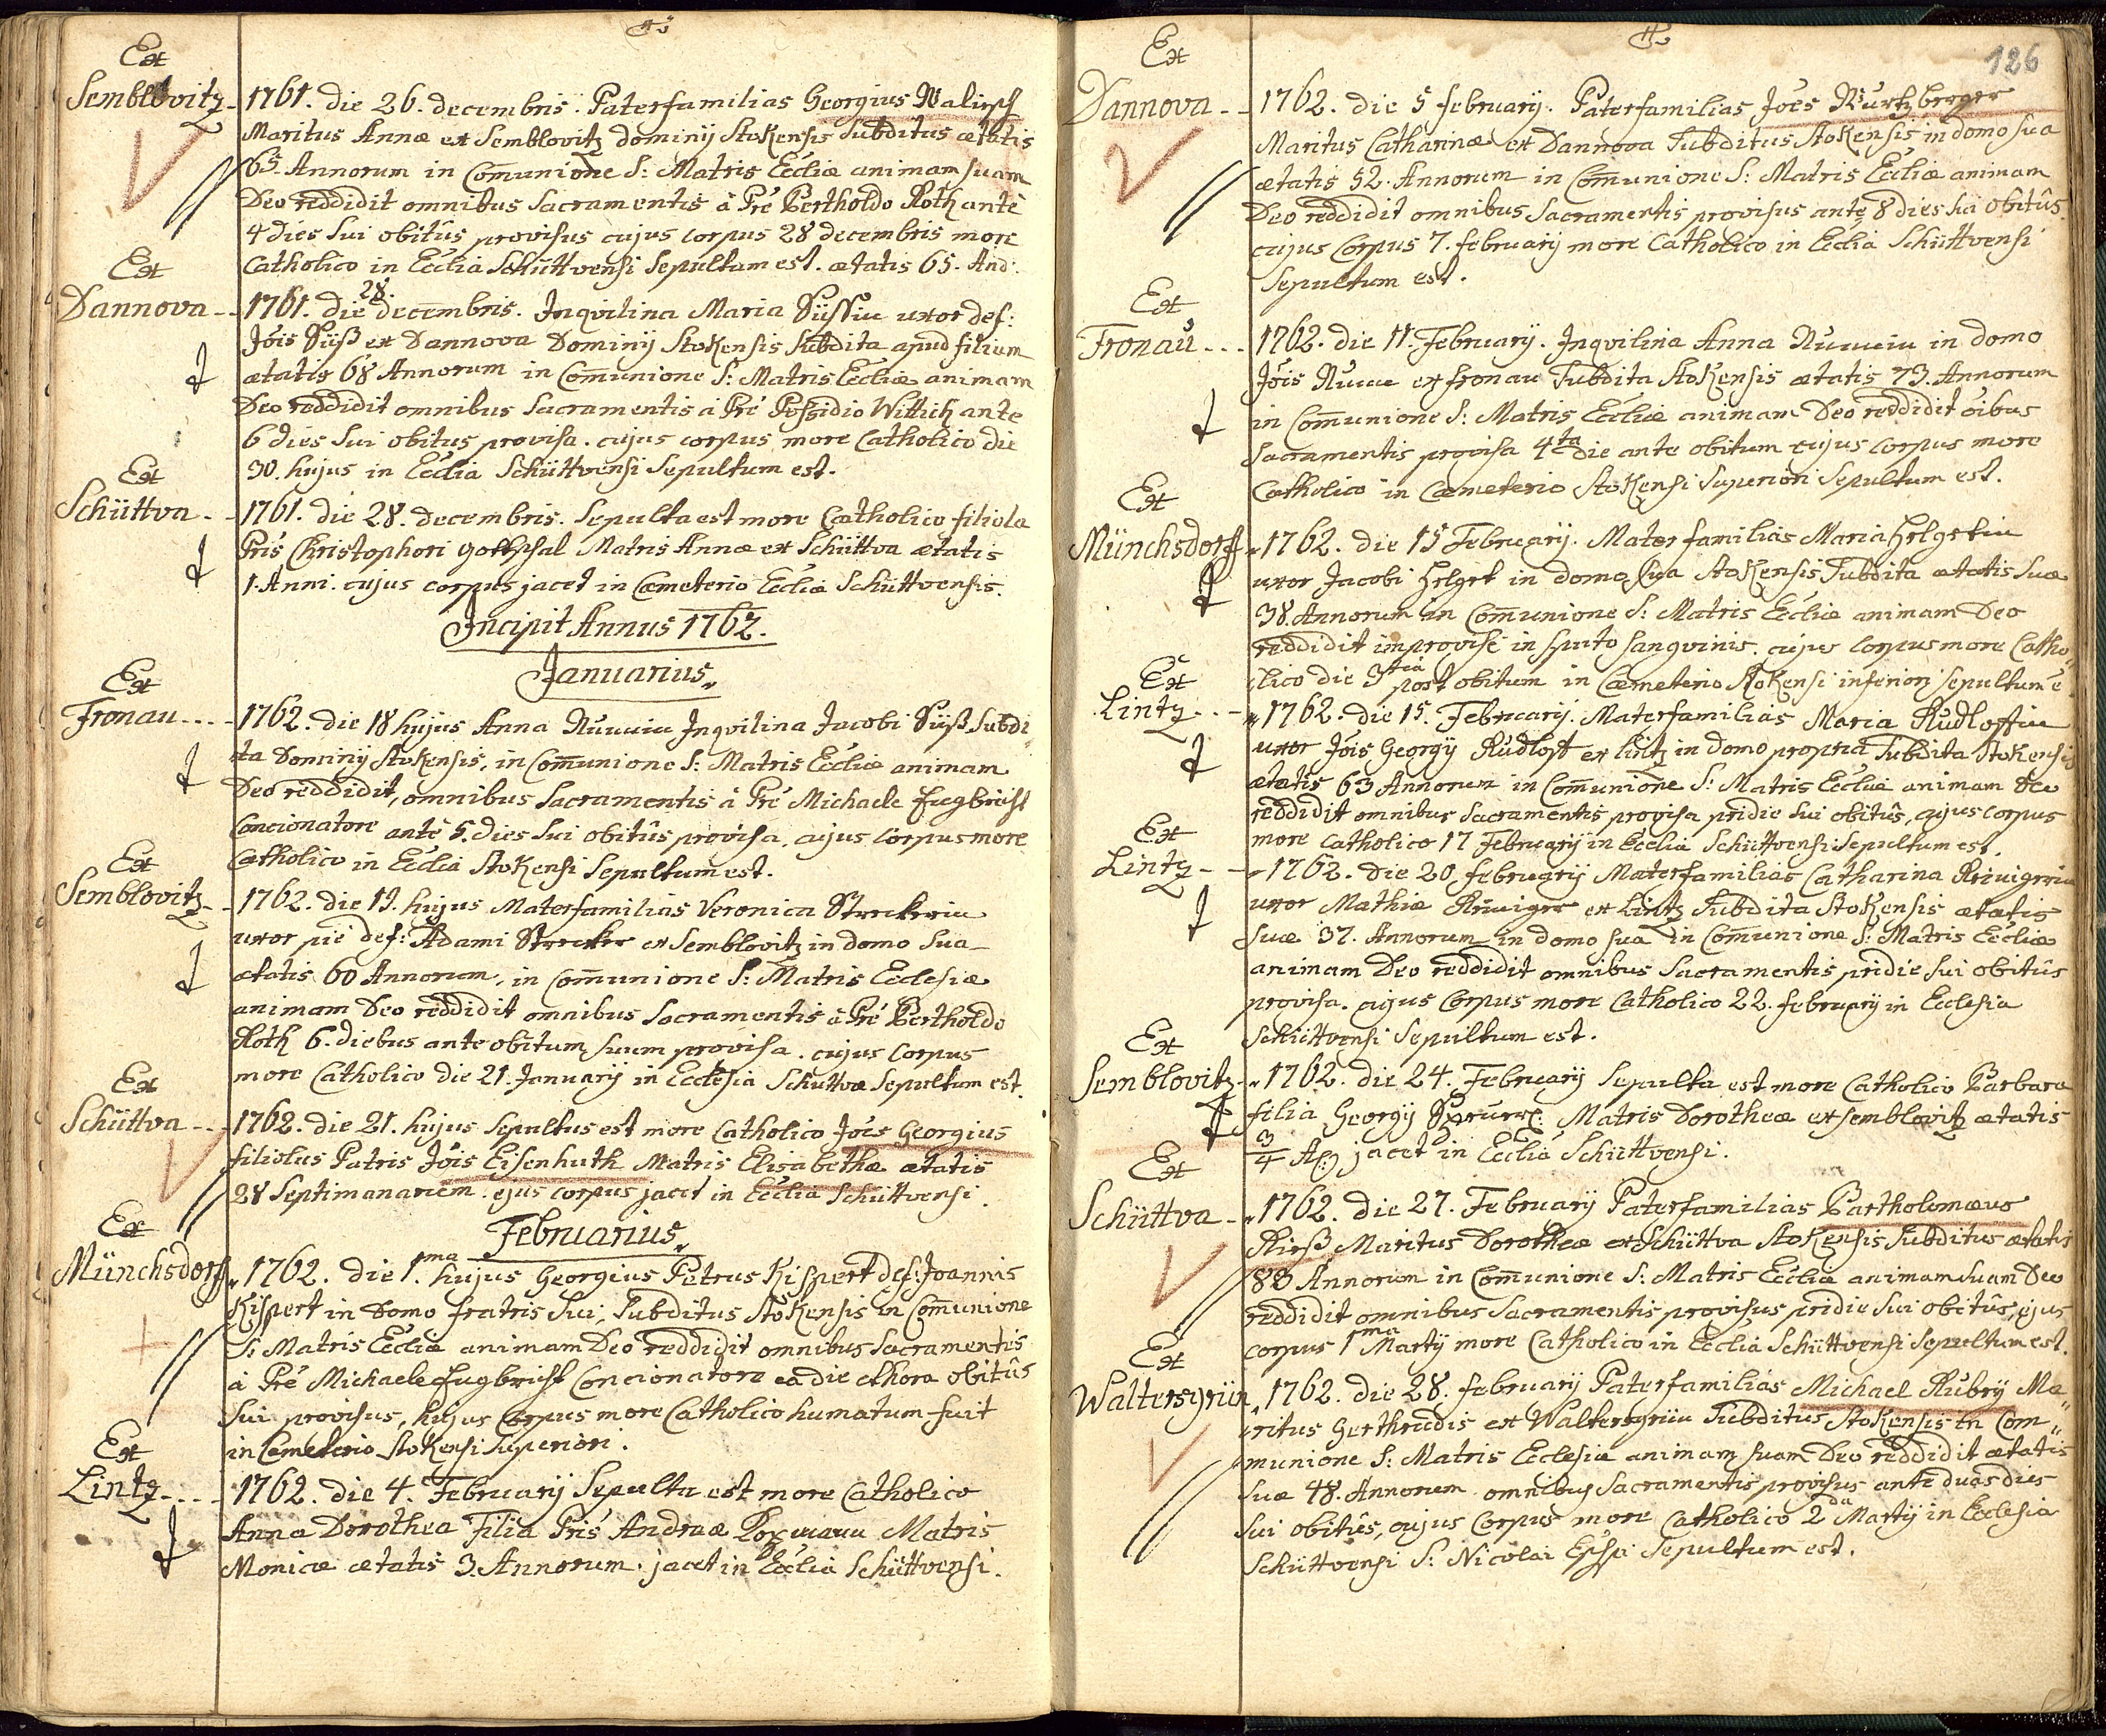 Ex
Semblovitz 1761. die 26. decembris. Paterfamilias Georgius Walirsch
Maritus Annæ ex Semblovitz dominij Stokensis Subditus ætatis
65. Annorum in Comunione S: Matris Eccliæ animam suam
Deo reddidit omnibus Sacramentis à Pre Bertholdo Roth ante
4 dies sui obitûs provisus cujus corpus 28 decembris more
Catholico in Ecclia Schüttvensi Sepultum est. ætatis 65. And:
Ex
Dannova 1761. die 28. decembris. Inqvilina Maria Süssin uxor def:
Jois Süß ex Dannova Dominij Stokensis Subdita apud filium
ætatis 68 Annorum in Comunione S: Matris Eccliæ animam
Deo reddidit omnibus Sacramentis à Pre Possidio Wittich ante
6 dies sui obitus provisa. cujus corpus more Catholico die
30. hujus in Ecclia Schüttvensi Sepultum est.
Ex
Schüttva 1761. die 28. decembris. Sepulta est more Catholico filiola
Pris Christophori Gottschal Matris Annæ ex Schüttva ætatis
1. Anni. cujus corpus jacet in Cæmeterio Eccliæ Schüttvensis.
Incipit Annus 1762.
Januarius
Ex
Fronau 1762. die 18 hujus Anna Inqvilina Jacobi Süß Subdi
ta Dominij Stokensis, in Comunione S: Matris Eccliæ animam
Deo reddidit, omnibus Sacramentis à Pre Michaele
Concionatore ante 5. dies sui obitûs provisa, cujus Corpus more
Catholico in Ecclia Stokensi Sepultum est.
Ex
Semblovitz 1762. die 19. hujus Materfamilias Veronica Streckerin
uxor pie def: Adami Strecker ex Semblovitz in domo sua
ætatis 60 Annorum, in Comunione S: Matris Ecclesiæ
animam Deo reddidit omnibus Sacramentis à Pre Bertholdo
Roth 6. diebus ante obitum suum provisa. cujus Corpus
more Catholico die 21. Januarij in Ecclesia Schuttvæ Sepultum est.
Ex
Schüttva 1762. die 21. hujus Sepultus est more Catholico Joes Georgius
filiolus Patris Jois Eisenhuth Matris Elisabethæ ætatis
28 Septimanarum. ejus corpus jacet in Ecclia Schüttvensi.
Februarius
Ex
Münchsdorff 1762. die 1.ma hujus Georgius Petrus Kispert def: Joannis
Kispert in Domo fratris sui, Subditus Stokensis in Comunione
S: Matris Eccliæ animam Deo reddidit omnibus Sacramentis
à Pre Michaele Concionatore ea die et hora obitûs
sui provisus, hujus Corpus more Catholico humatum fuit
in Cemeterio Stokensi Superiori.
Ex
Lintz 1762. die 4. Februarij Sepulta est more Catholico
Anna Dorothea Filia Pris Andreæ Matris
Monicæ ætatis 3. Annorum. jacet in Ecclia Schüttvensi.
126
Ex
Dannova 1762. die 5 februarij. Paterfamilias Joes Wurtzberger
Maritus Catharinæ ex Dannova Subditus Stokensis in domo sua
ætatis 52. Annorum in Comunione S: Matris Eccliæ animam
Deo reddidit omnibus Sacramentis provisus ante 8 dies sui obitûs.
cujus Corpus 7. februarij more Catholico in Ecclia Schüttvensi
Sepultum est.
Ex
Fronau 1762. die 11. Februarij. Inqvilina Anna in domo
Jois ex fronau Subdita Stokensis ætatis 73. Annorum
in Comunione S: Matris Eccliæ animam Deo reddidit oibus
Sacramentis provisa 4ta die ante obitum cujus corpus more
Catholico in Cæmeterio Stokensi Superiori Sepultum est.
Ex
Münchsdorff 1762. die 15 Februarij. Mater familias Maria Helgetin
uxor Jacobi Helget in domo sua Stokensis Subdita ætatis suæ
38. Annorum in Comunione S: Matris Eccliæ animam Deo
reddidit improvise in sputo sangvinis. cujus corpus more Catho
lico die 3tia post obitum in Cæmeterio Stokensi inferiori sepultum e
Ex
Lintz 1762. die 15. Februarij. Materfamilias Maria Rudloffin
uxor Jois Georgij Rudloff ex Lintz in domo propria Subdita Stokensis
ætatis 63 Annorum in Comunione S: Matris Eccliæ animam Deo
reddidit omnibus Sacramentis provisa pridie sui obitûs, cujus corpus
more catholico 17 Februarij in Ecclia Schüttvensi Sepultum est.
Ex
Lintz 1762. die 20. februarij Materfamilias Catharina
uxor Mathiæ ex Lintz Subdita Stokensis ætatis
suæ 37. Annorum in domo sua in Comunione S: Matris Eccliæ
animam Deo reddidit omnibus Sacramentis pridie sui obitûs
provisa. cujus Corpus more Catholico 22. februarij in Ecclesia
Schüttvensi Sepultum est.
Ex
Semblovitz 1762. die 24. Februarij Sepulta est more Catholico Barbara
filia Georgij Matris Dorotheæ ex semblovitz ætatis
3/4 A: jacet in Ecclia Schüttvensi.
Ex
Schüttva 1762. die 27. Februarij Paterfamilias Bartholomæus
Rieß Maritus Dorotheæ ex Schüttva Stokensis Subditus ætatis
88 Annorum in Comunione S: Matris Eccliæ animam suam Deo
reddidit omnibus Sacramentis provisus pridie sui obitûs, ejus
corpus 1ma Martij more Catholico in Ecclia Schüttvensi Sepultum est.
Ex
Waltersgrün 1762. die 28. februarij Paterfamilias Michael Rubrij Ma
ritus Gerthrudis ex Waltersgrün Subditus Stokensis in Com
munione S: Matris Ecclesiæ animam suam Deo reddidit ætatis
suæ 48. Annorum omnibus Sacramentis provisus ante duas dies
sui obitûs, cujus Corpus more Catholico 2da Martij in Ecclesia
Schüttvensi S: Nicolai Eppi Sepultum est.